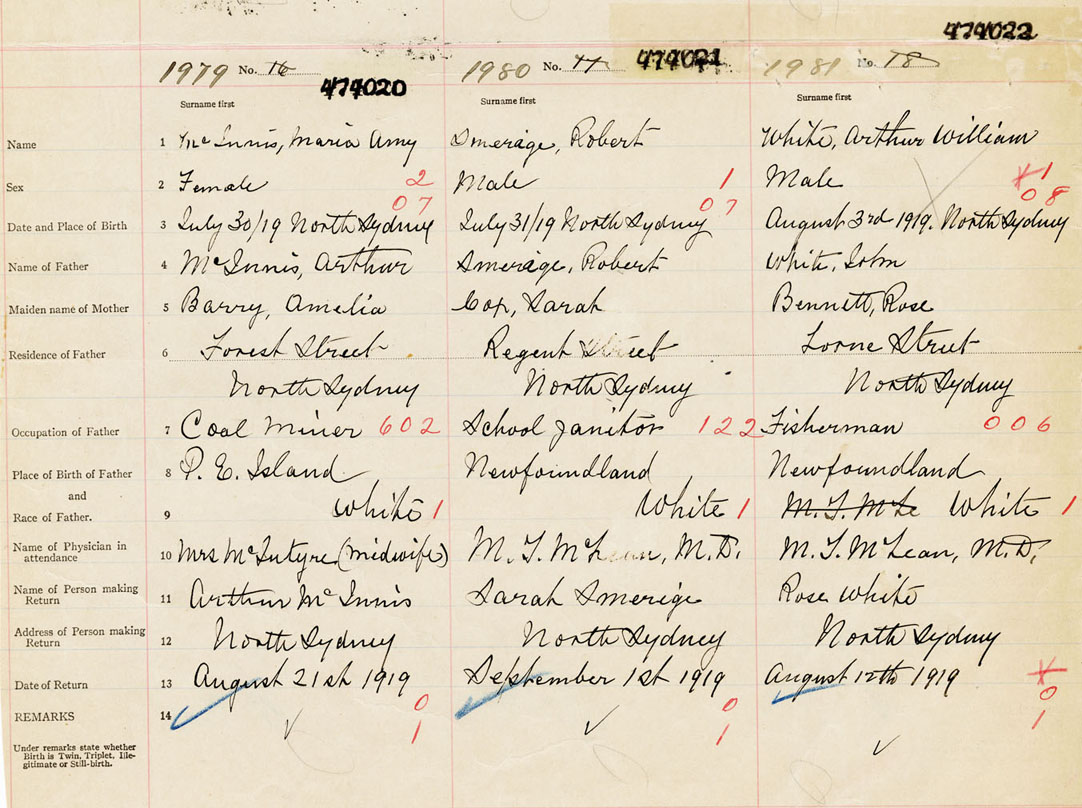 474022
1979 No. 16 474020
1980 No. 17 474021
1981 No. 18
Surname first Surname first Surname first
Name 1 McInnis, Maria Amy Smerage, Robert White, Arthur William
Sex 2 Female 2 Male 1 Male 1
07 07 08
Date and Place of Birth 3 July 30/19 North Sydney July 31/19 North Sydney August 3rd 1919. North Sydney
Name of Father 4 McInnis, Arthur Smerage, Robert White, John
Maiden name of Mother 5 Barry, Amelia Cox, Sarah Bennett, Rose
Residence of Father 6 Forest Street Regent Street Lorne Street
North Sydney North Sydney North Sydney
Occupation of Father 7 Coal Miner 602 School Janitor 122 Fisherman 006
Place of Birth of Father 8 P. E. Island Newfoundland Newfoundland
and
Race of Father. 9 White 1 White 1 White 1
Name of Physician in
attendance 10 Mrs McIntyre (midwife) M. T. McLean, M.D. M. T. McLean, M.D.
Name of Person making
Return 11 Arthur McInnis Sarah Smerige Rose White
Address of Person making
Return 12 North Sydney North Sydney North Sydney
Date of Return 13 August 21st 1919 September 1st 1919 August 12th 1919
0 0 0
REMARKS 14
1 1 1
Under remarks state whether
Birth is Twin, Triplet, Ille-
gitimate or Still-birth.